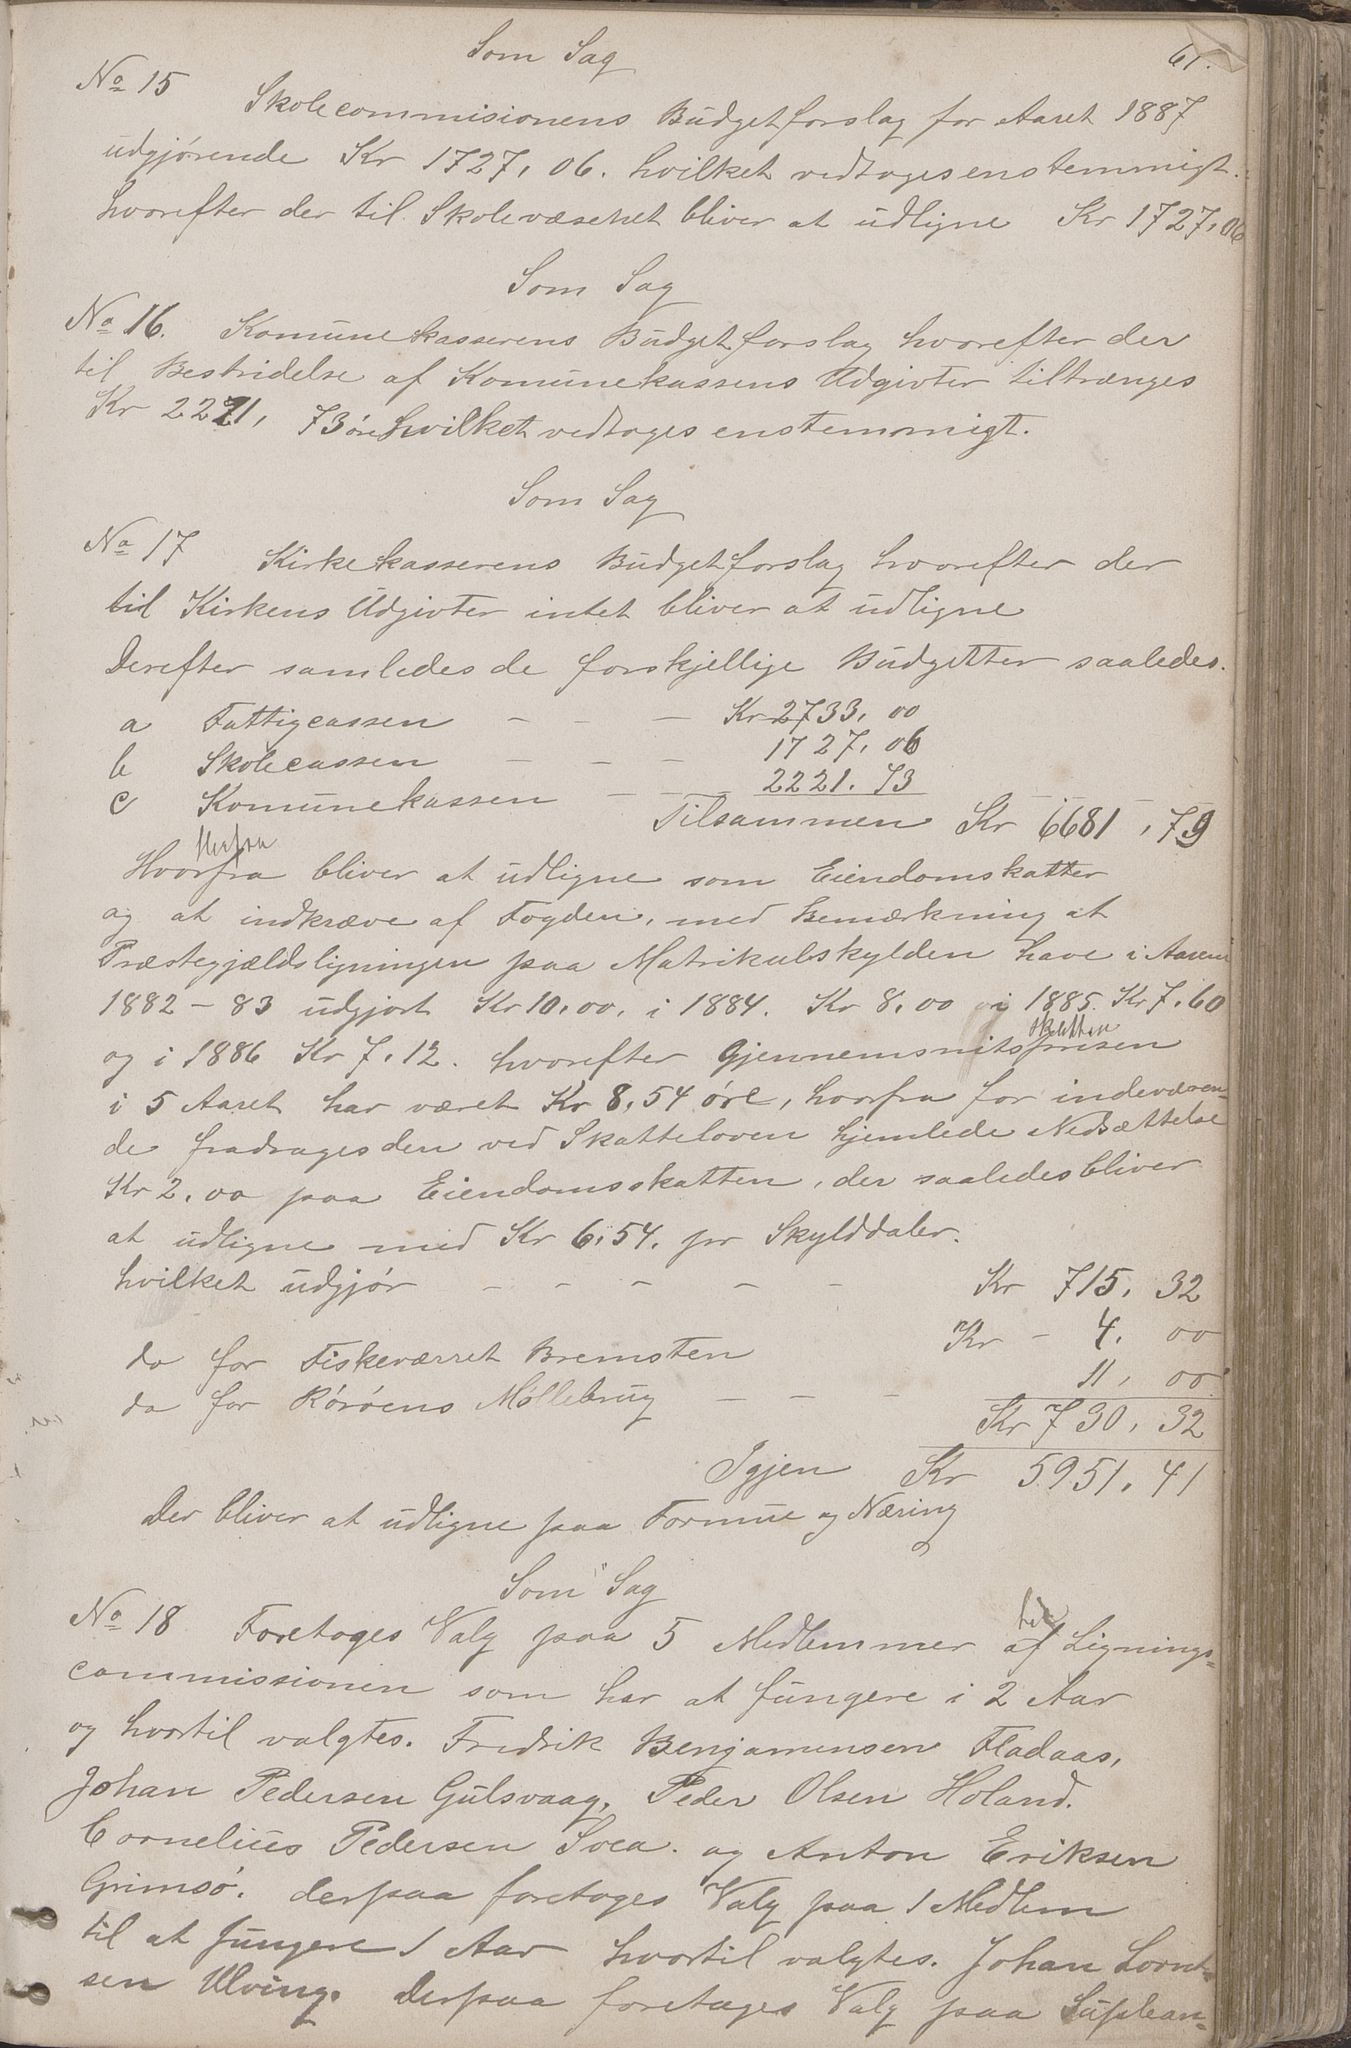 61.
Som Sag
No 15 Skolecommisionens Budgetforslag for Aaret 1887
udgjørende Kr 1727,06. hvilket vedtoges enstemmigt.
hvorefter der til Skolevæsenet bliver at udligne Kr 1727,06
Som Sag
No 16. Komunekasserens Budgetforslag hvorefter der
til Bestridelse af Komunekassens Udgivter tiltrænges
Kr 2221, 73 øre hvilket vedtoges enstemmigt.
Som Sag
No 17 Kirkekasserens Budgetforslag hvorefter der
til Kirkens Udgivter intet bliver at udligne
Derefter samledes de forskjellige Budgetter saaledes.
a Fattigcassen - - - Kr 2733,00
b Skolecassen - - - 1727,06
c Komunekassen - - - 2221.73
Tilsammen Kr 6681,79
Herfra
Hvorfra bliver at udligne som Eiendomskatter
og at indkræve af Fogden, med Bemærkning at
Præstegjældsligningen paa Matrikulskylden have i Aarene
1882-83 udgjort Kr 10,00, i 1884. Kr 8,00 i 1885. Kr 7,60
skatten
og i 1886 Kr 7,12. hvorefter Gjennemsnitsprisen
i 5 Aaret har været Kr 8,54 øre, hvorfra for indeværen-
de fradrages den ved Skatteloven hjemlede Nedsættelse
Kr 2,00 paa Eiendomsskatten, der saaledes bliver
at udligne med Kr 6,54. pr Skylddaler.
hvilket udgjør - - - - - Kr 715,32
do for Fiskeværret Bremsten Kr - 4.00
do for Rørøens Møllebrug - - - 11,00
Kr 730,32
Igjen Kr 5951,41
Der bliver at udligne paa Formue og Næring
Som Sag
til
No 18 Foretoges Valg paa 5 Medlemmer af Lignings-
commissionen som har at fungere i 2 Aar
og hvortil valgtes. Fredrik Benjamensen Fladaas,
Johan Pedersen Gulsvaag, Peder Olsen Holand.
Cornelius Pedersen Svea. og Anton Eriksen
Grimsø. derpaa foretoges Valg paa 1 Medlem
til at fungere 1 Aar hvortil valgtes. Johan Lornt-
sen Ulving. Derpaa foretoges Valg paa Suplean-